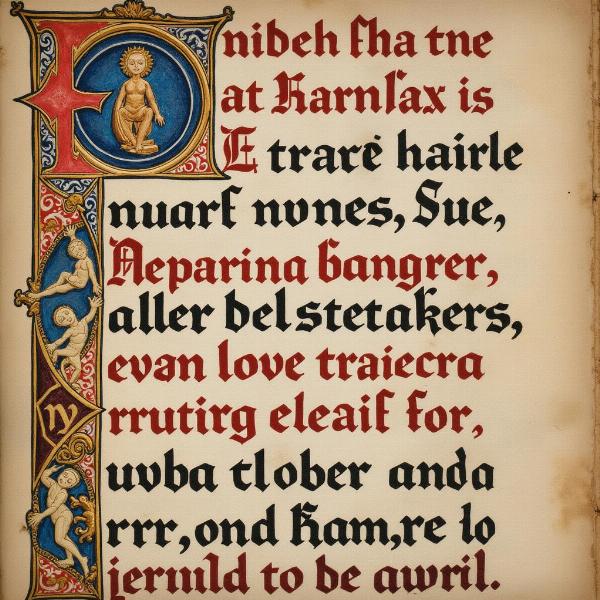 nibeh ſha tne
at Karnſax is
E trarė hairle
nuarf nvnes, Sue,
Aeparina bangrer,
aller belstetakers,
evan love traiecra
ny
rrutirg eleaif for,
uvba tlober anda
rrr, ond Kam,re lo
jeruuld to be awril.